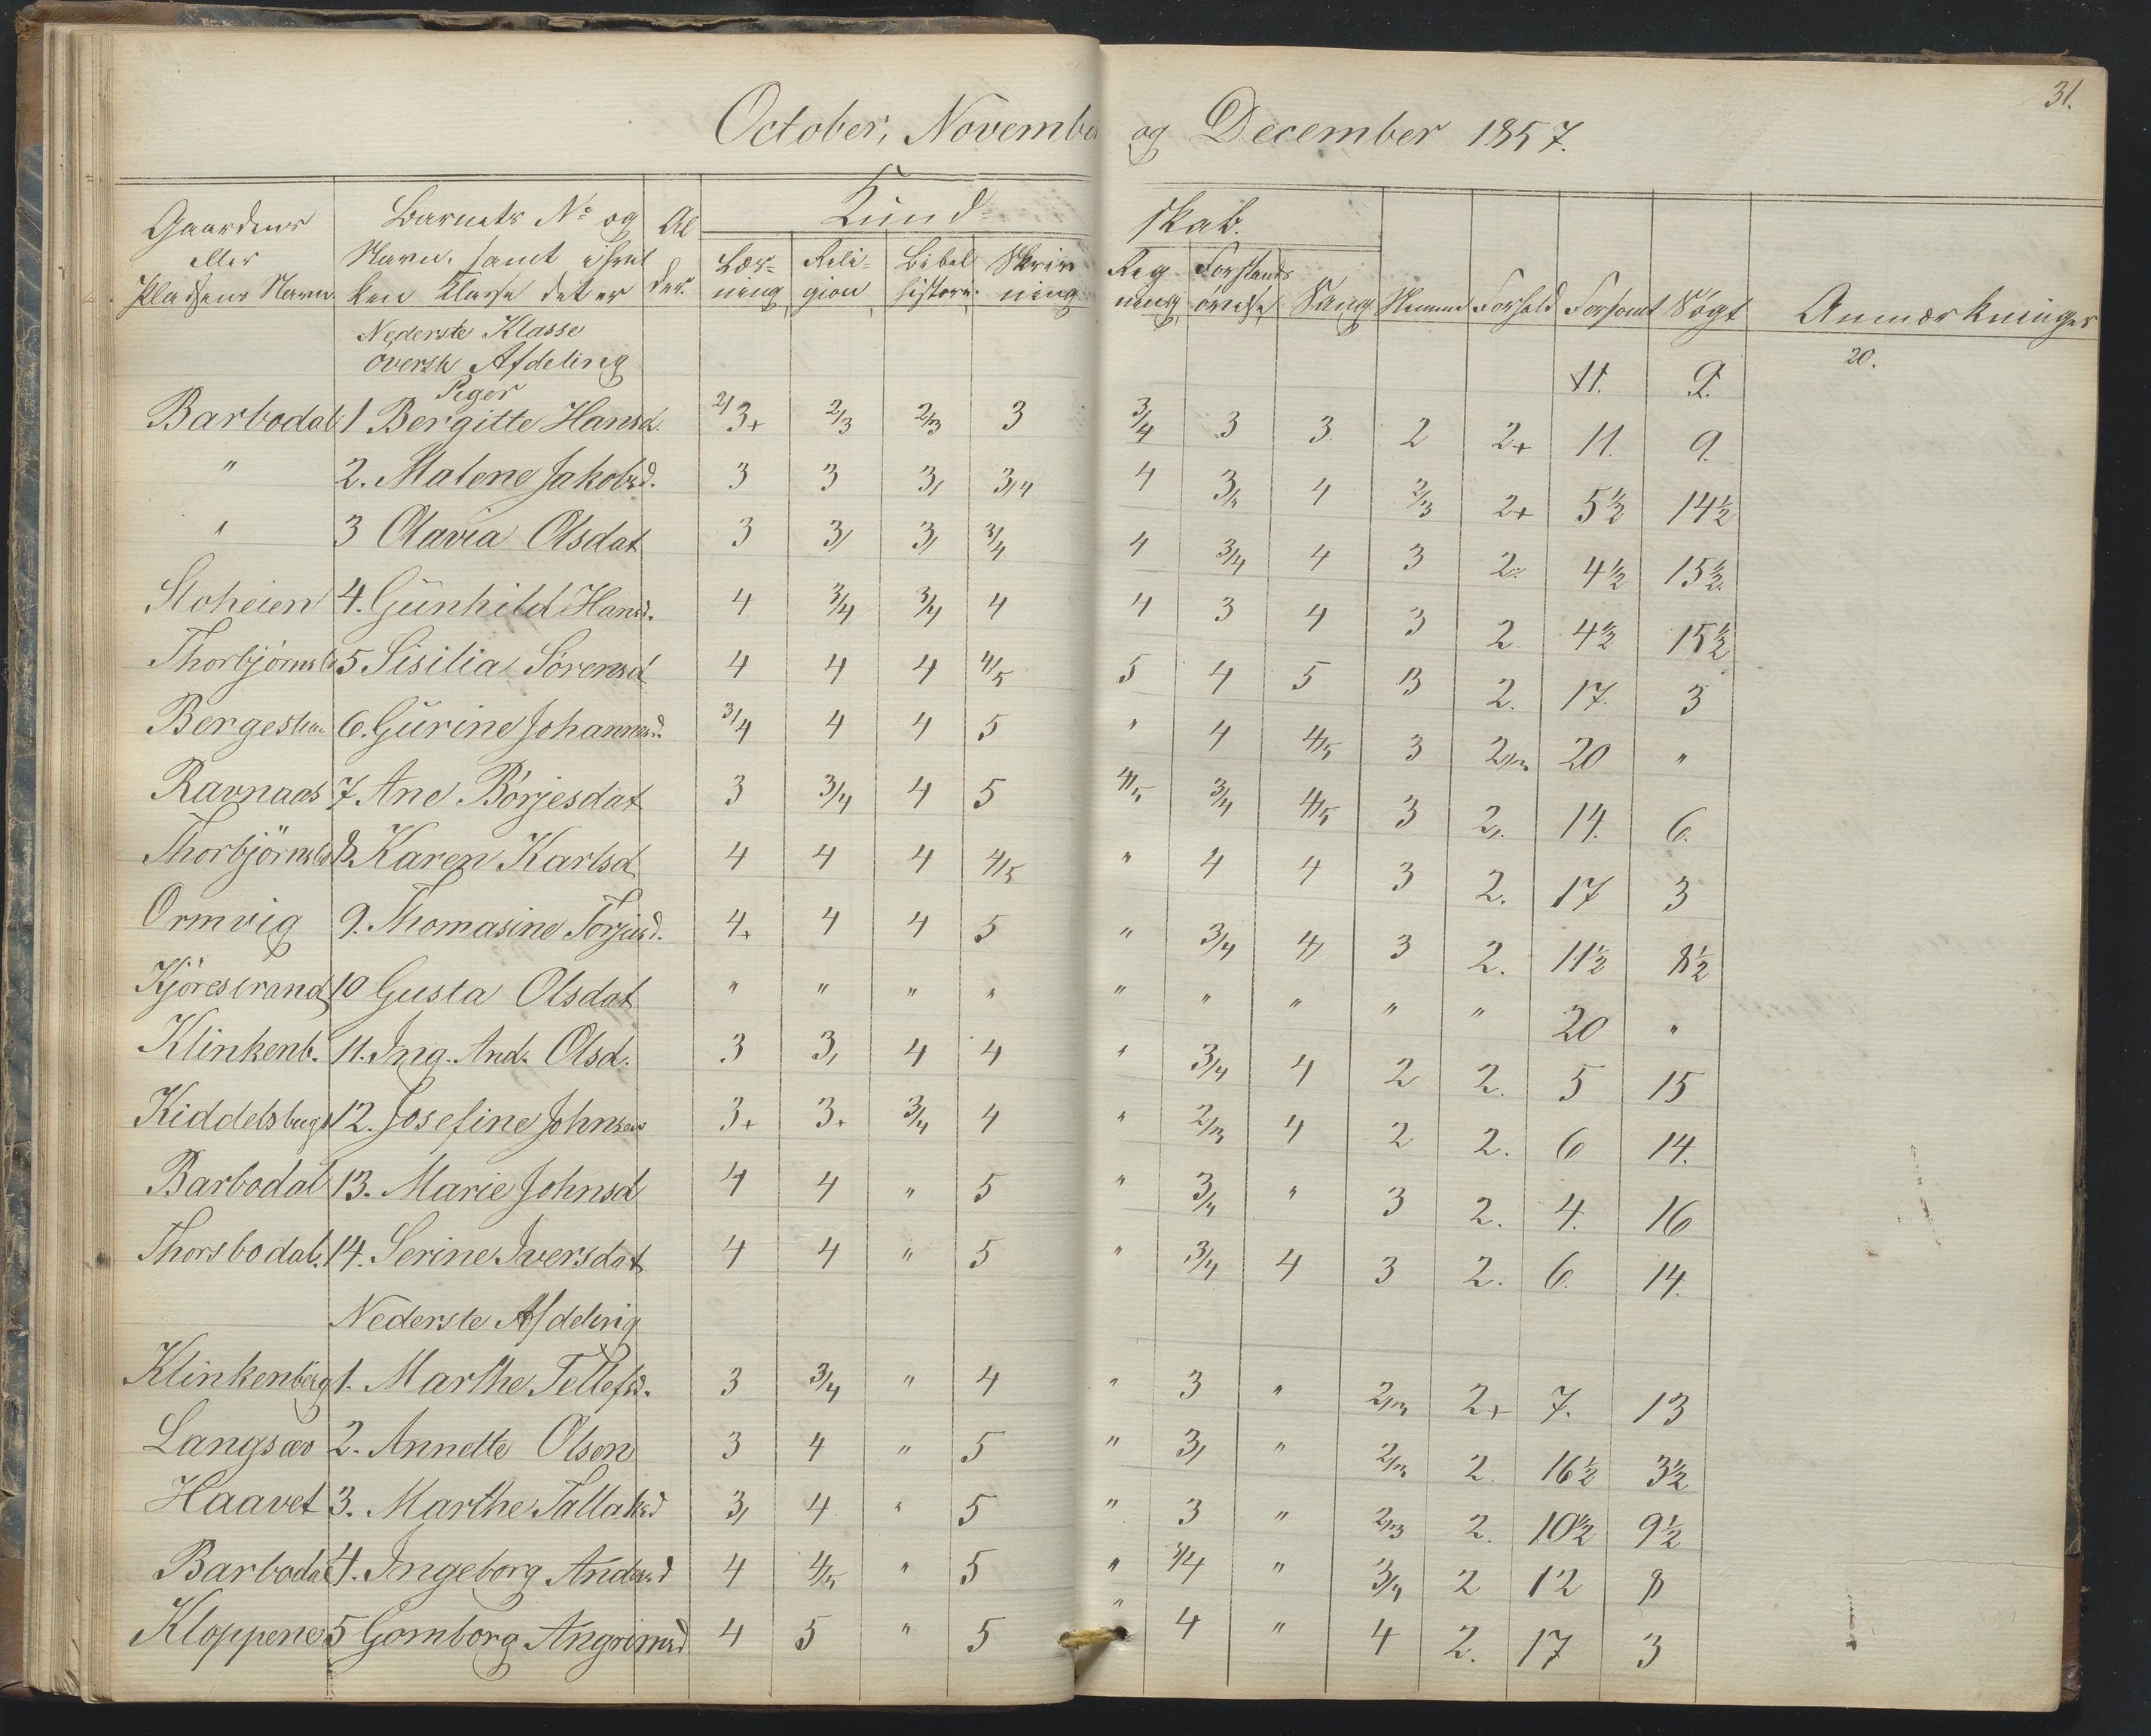 31.
October, November og December 1857.
Gaardens eller Pladsens Navn. Barnets No og Navn, samt i hvilken Klasse det er Alder. Kundskab. Læsning Religion Bibelhistorie. Skrivning Regning Forstandsøvelse Sang Nemme Forhold Forsømt Søgt Anmærkninger
Nederste Klasse
øverste Afdeling 11. 9. 20.
Piger
Barbodal 1 Bergitte Hansd. 2/3+ 2/3 2/3 3 3/4 3 3. 2 2+ 11. 9.
" 2. Malene Jakobsd. 3 3 3/ 3/4 4 3/4 4 2/3 2+ 5½ 14½
" 3 Olavia Olsdat 3 3/ 3/ 3/4 4 3/4 4 3 2. 4½ 15½.
Stoheien 4. Günhild Hansd. 4 3/4 3/4 4 4 3 4 3 2. 4½ 15½
Thorbjörnsb 5 Sisilia Sörensd 4 4 4 4/5 5 4 5 3 2. 17. 3
6. Gürine Johannesd. 3/4 4 4 5 " 4 4/5 3 2/3 20 "
Ravnaas 7 Ane Börjesdat 3 3/4 4 5 4/5 3/4 4/5 3 2/. 14. 6.
Thorbjörnsb 8. Karen Karlsd 4 4 4 4/5 " 4 4 3 2. 17 3
Ormvig 9. Thomasine Torjusd. 4+ 4 4 5 " 3/4 4/ 3 2. 11½ 8½
Kjörestrand 10 Gusta Olsdat " " " " " " " " " 20 "
Klinkenb. 11. Ing. And. Olsd. 3 3/ 4 4 " 3/4 4 2 2. 5 15
Kiddelsbugt 12. Josefine Johnsen 3+ 3+ 3/4 4 " 2/3 4 2 2. 6 14.
Barbodal 13. Marie Johnsd 4 4 " 5 " 3/4 " 3 2. 4. 16
Thorsbodal. 14. Serine Iversdat 4 4 " 5 " 3/4 4 3 2. 6. 14.
Nederste Afdeling
Klinkenberg 1. Marthe Tellefsd. 3 3/4 " 4 " 3 " 2/3 2+ 7. 13
Langsæv 2. Annette Olsen 3 4 " 5 " 3/ " 2/3 2. 16½ 3½
Haavet 3. Marthe Tallaksd 3/ 4 " 5 " 3 " 2/3 2. 10½ 9½
Barbodal 4. Ingeborg Andersd 4 4/5 " 5 " 3/4 " 3/4 2 12 8
Kloppene 5 Gomborg Angrimsd 4 5 " 5 " 4 " 4 2. 17 3